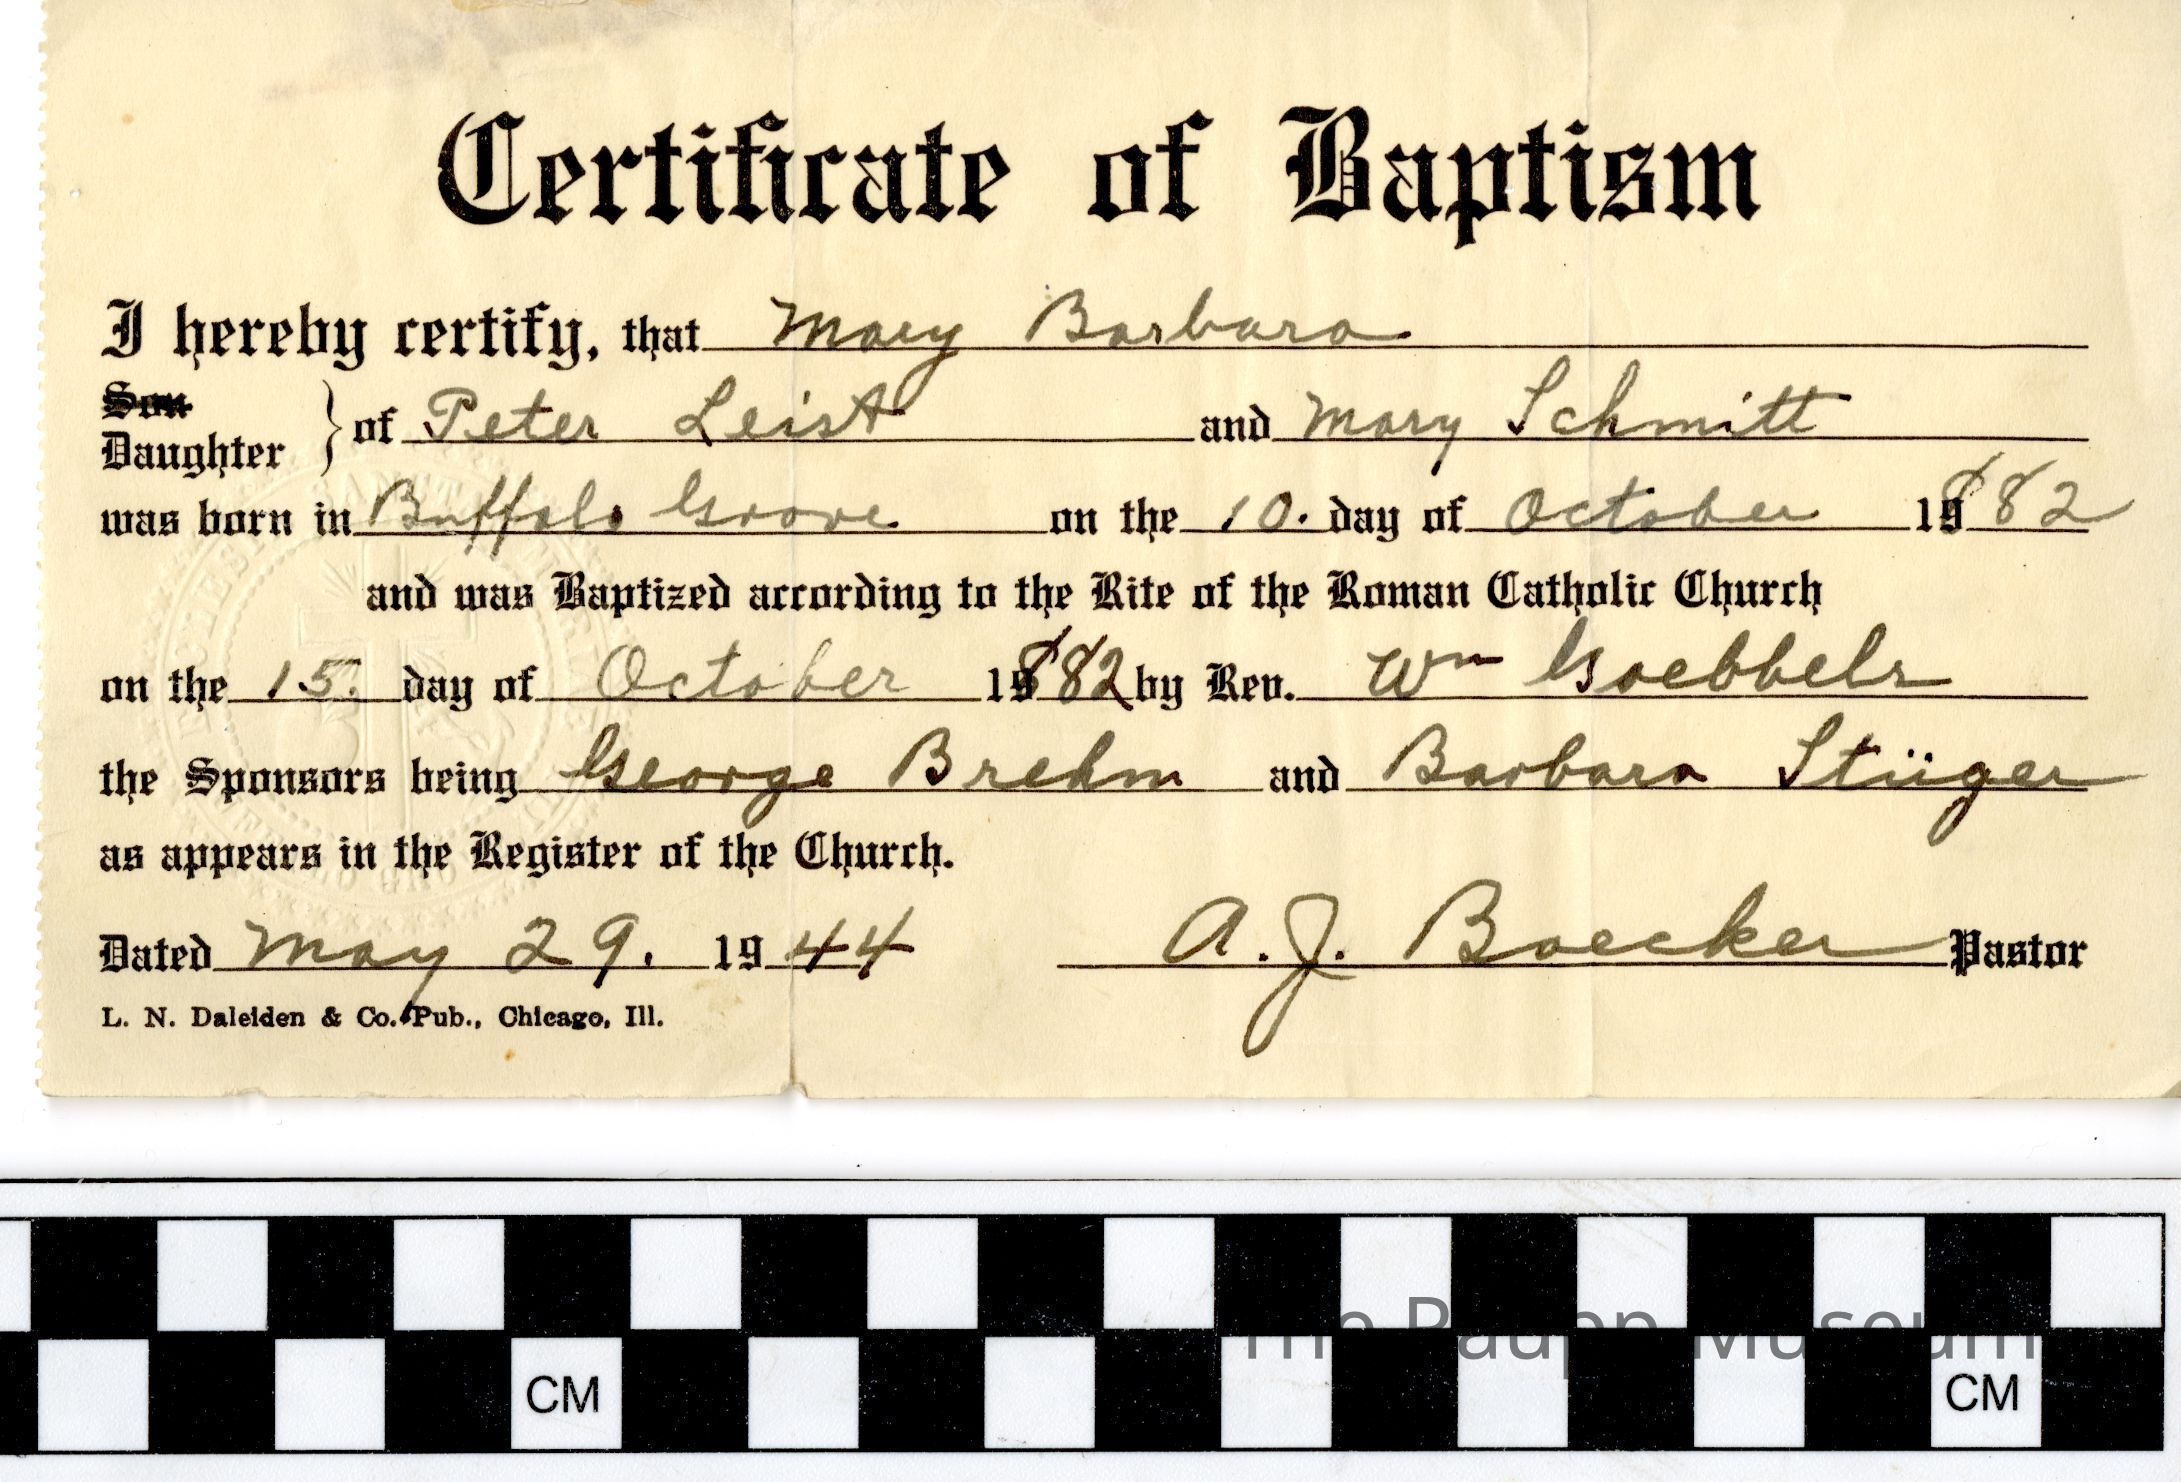 Certificate of Baptism
I hereby certify, that Mary Barbara
Son
Daughter } of Peter Leist and Mary Schmitt
was born in Buffalo Grove on the 10. day of October 1882
and was Baptized according to the Rite of the Roman Catholic Church
on the 15. day of October 1882 by Rev. Wm Goebbels
the Sponsors being George Brehm and Barbara Stüger
as appears in the Register of the Church.
Dated May 29. 1944 A. J. Boecker Pastor
L. N. Daleiden & Co. Pub., Chicago, Ill.
The Raupp Museum
CM CM